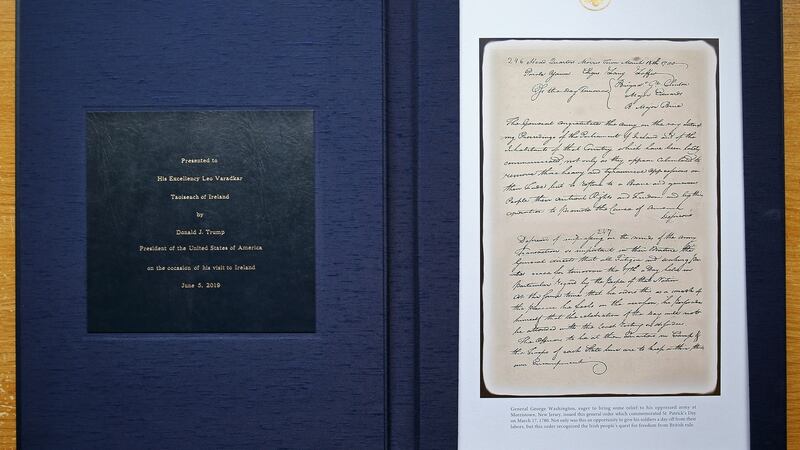 Presented to
His Excellency Leo Varadkar
Taoiseach of Ireland
by
Donald J. Trump
President of the United States of America
on the occasion of his visit to Ireland
June 5, 2019
246 Head Quarters Morris Town March 16th 1780
Officers of the day Tomorrow { Brigadr Genl Clinton
Major Edwards
B Major
The General congratulates the army on the very interest
ing Proceedings of the Parliament of Ireland and the
Inhabitants of that Country which have been lately
communicated not only as they appear calculated to
remove those heavy and tyrannical oppressions on
their Trade but to restore to a Brave and generous
People their ancient Rights and Freedom and by their
operation to promote the Cause of America
247
Desirous of impressing on the minds of the Army
Transactions so important in their Nature the
General directs that all Fatigue and working Par
ties cease for tomorrow the 17th a Day held in
Particular Regard by the People of that Nation
At the same time that he orders this as a mark of
the pleasure he feels on the occasion, he persuades
himself that the celebration of the Day will not
be attended with the least Rioting or disorder
The Officers to be at their Quarters in Camp &
the Troops of each State Line are to keep within their
own Encampment
General George Washington, eager to bring some relief to his oppressed army at
Morristown, New Jersey, issued this general order which commemorated St. Patrick's Day
on March 17, 1780. Not only was this an opportunity to give his soldiers a day off from their
labors, but this order recognized the Irish people's quest for freedom from British rule.